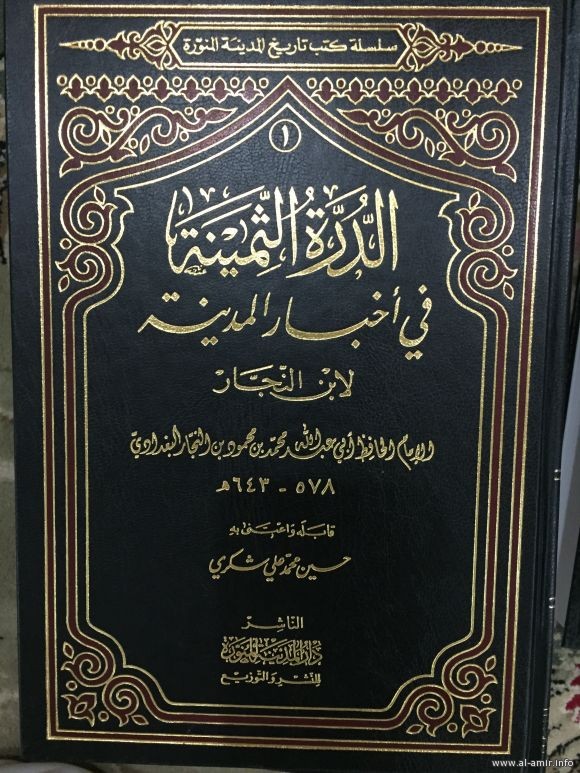 سلسلة كتب تاريخ المدينة المنورة
١
الدُّرَّةُ الثَّمِينَة
في أخبار المدينة
لابن النَّجَّار
الإمام الحافظ أبي عبد الله محمّد بن محمود بن النجّار البغداديّ
٥٧٨ - ٦٤٣هـ
قابله واعتنى به
حسين محمّد علي شكري
الناشر
دار المدينة المنورة
للنشر والتوزيع
www.al-amir.info